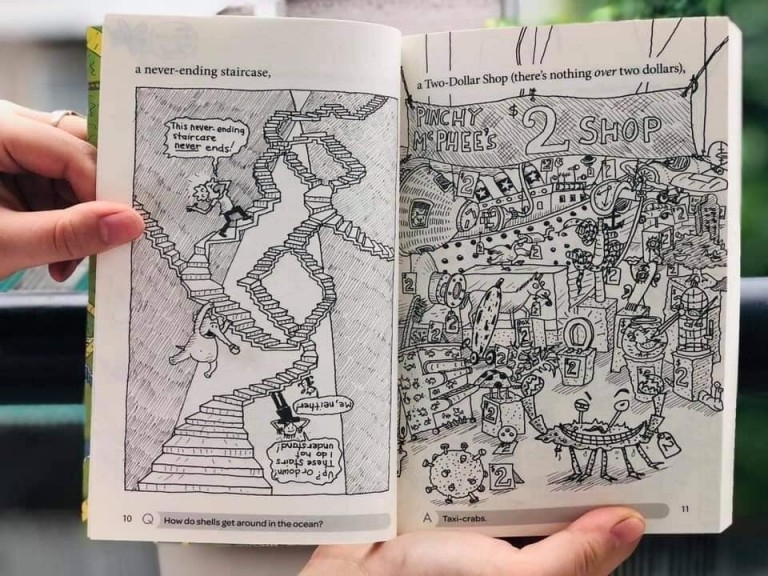 a never-ending staircase,
This never-ending
staircase
never ends!
Me, neither!
Up? Or down?
These stairs
I do not
understand!
10 Q How do shells get around in the ocean?
a Two-Dollar Shop (there's nothing over two dollars),
PINCHY
McPHEE'S
$2 SHOP
2
2
2
2
2
2
2
2
A Taxi-crabs.
11